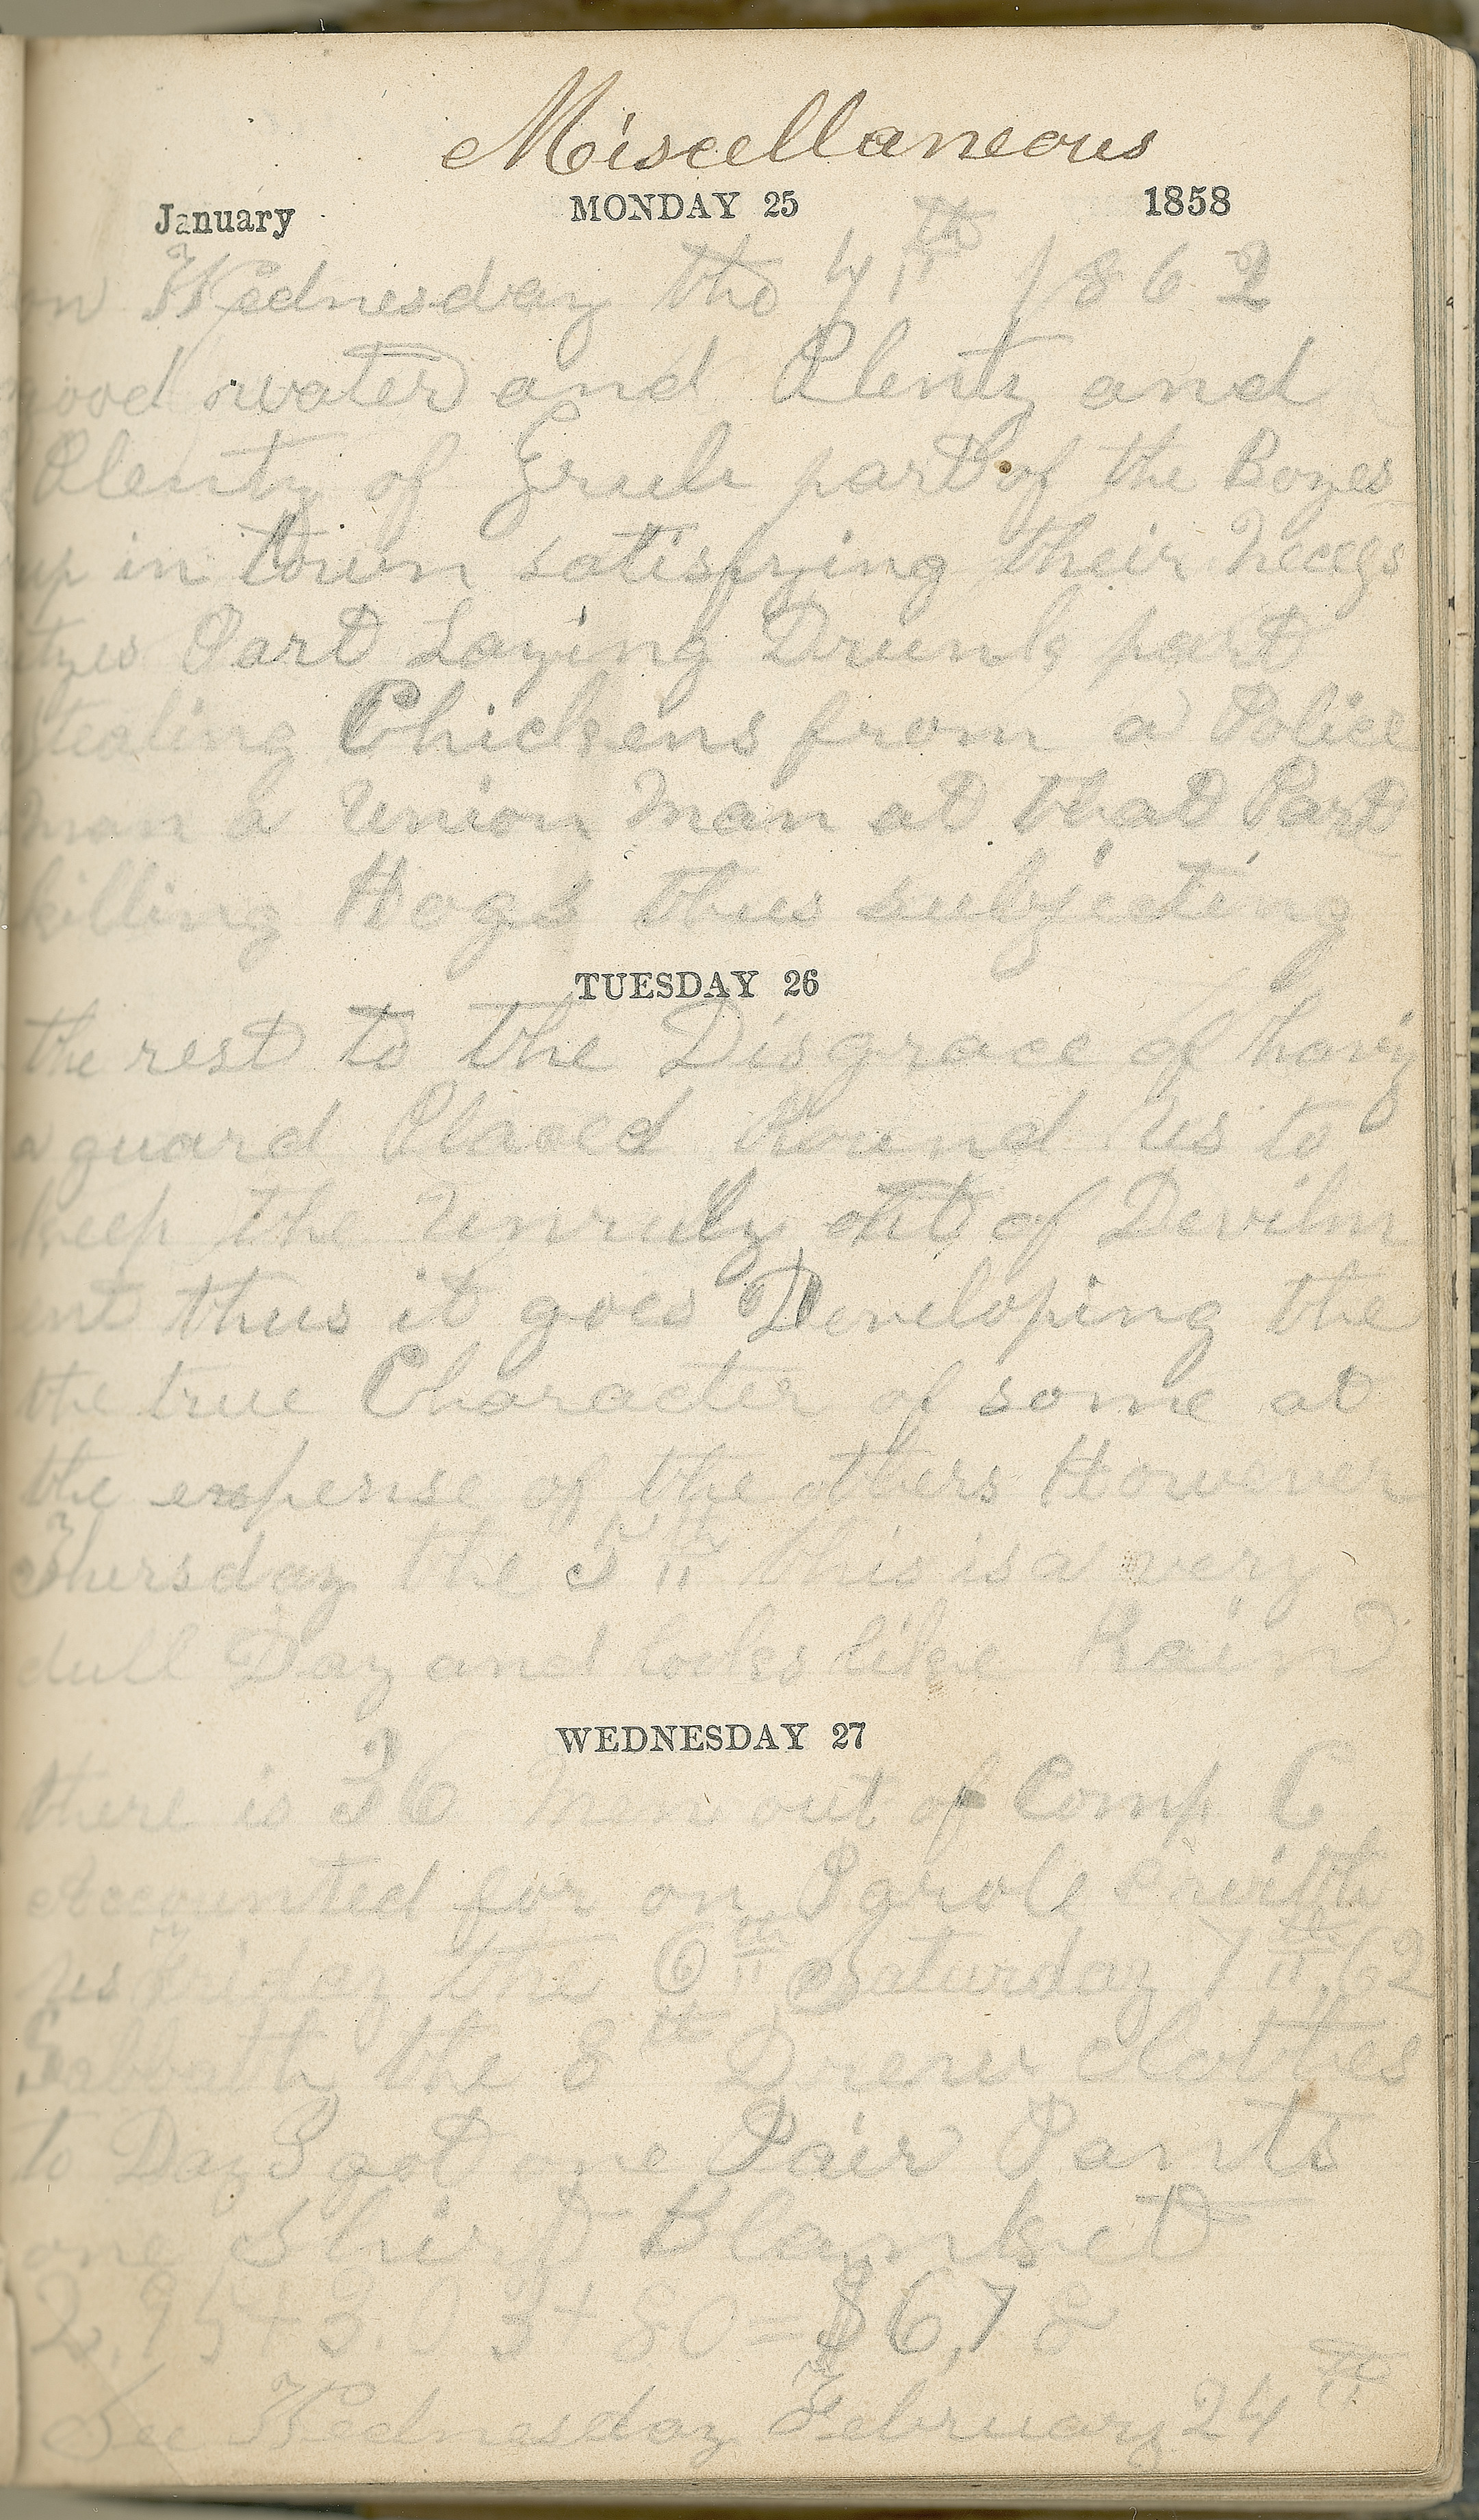 Miscellaneous
January MONDAY 25 1858
on Wednesday the 4th 1862
good water and Plenty and
Plenty of Grub part of the Boyes
up in town satisfying their Necess
ityes Part Laying Drunk part
stealing Chickens from a Police
man a Union Man at that Part
killing Hogs thus subjecting
TUESDAY 26
the rest to the Disgrace of having
a guard Placed Round us to
keep the Unruly out of Devilm
ent thus it goes Developing the
the true Character of some at
the expense of the others However
Thursday the 5th this is a very
dull Day and looks like Rain
WEDNESDAY 27
there is 36 Men out of Comp C
Accounted for on Parole with
us Friday the 6th Saturday 7th 62
Sabbath the 8th Drew clothes
to Day I got one Pair Pants
one Shirt Blanket
2.95+3.03+80=$6,78
See Wednesday February 24th